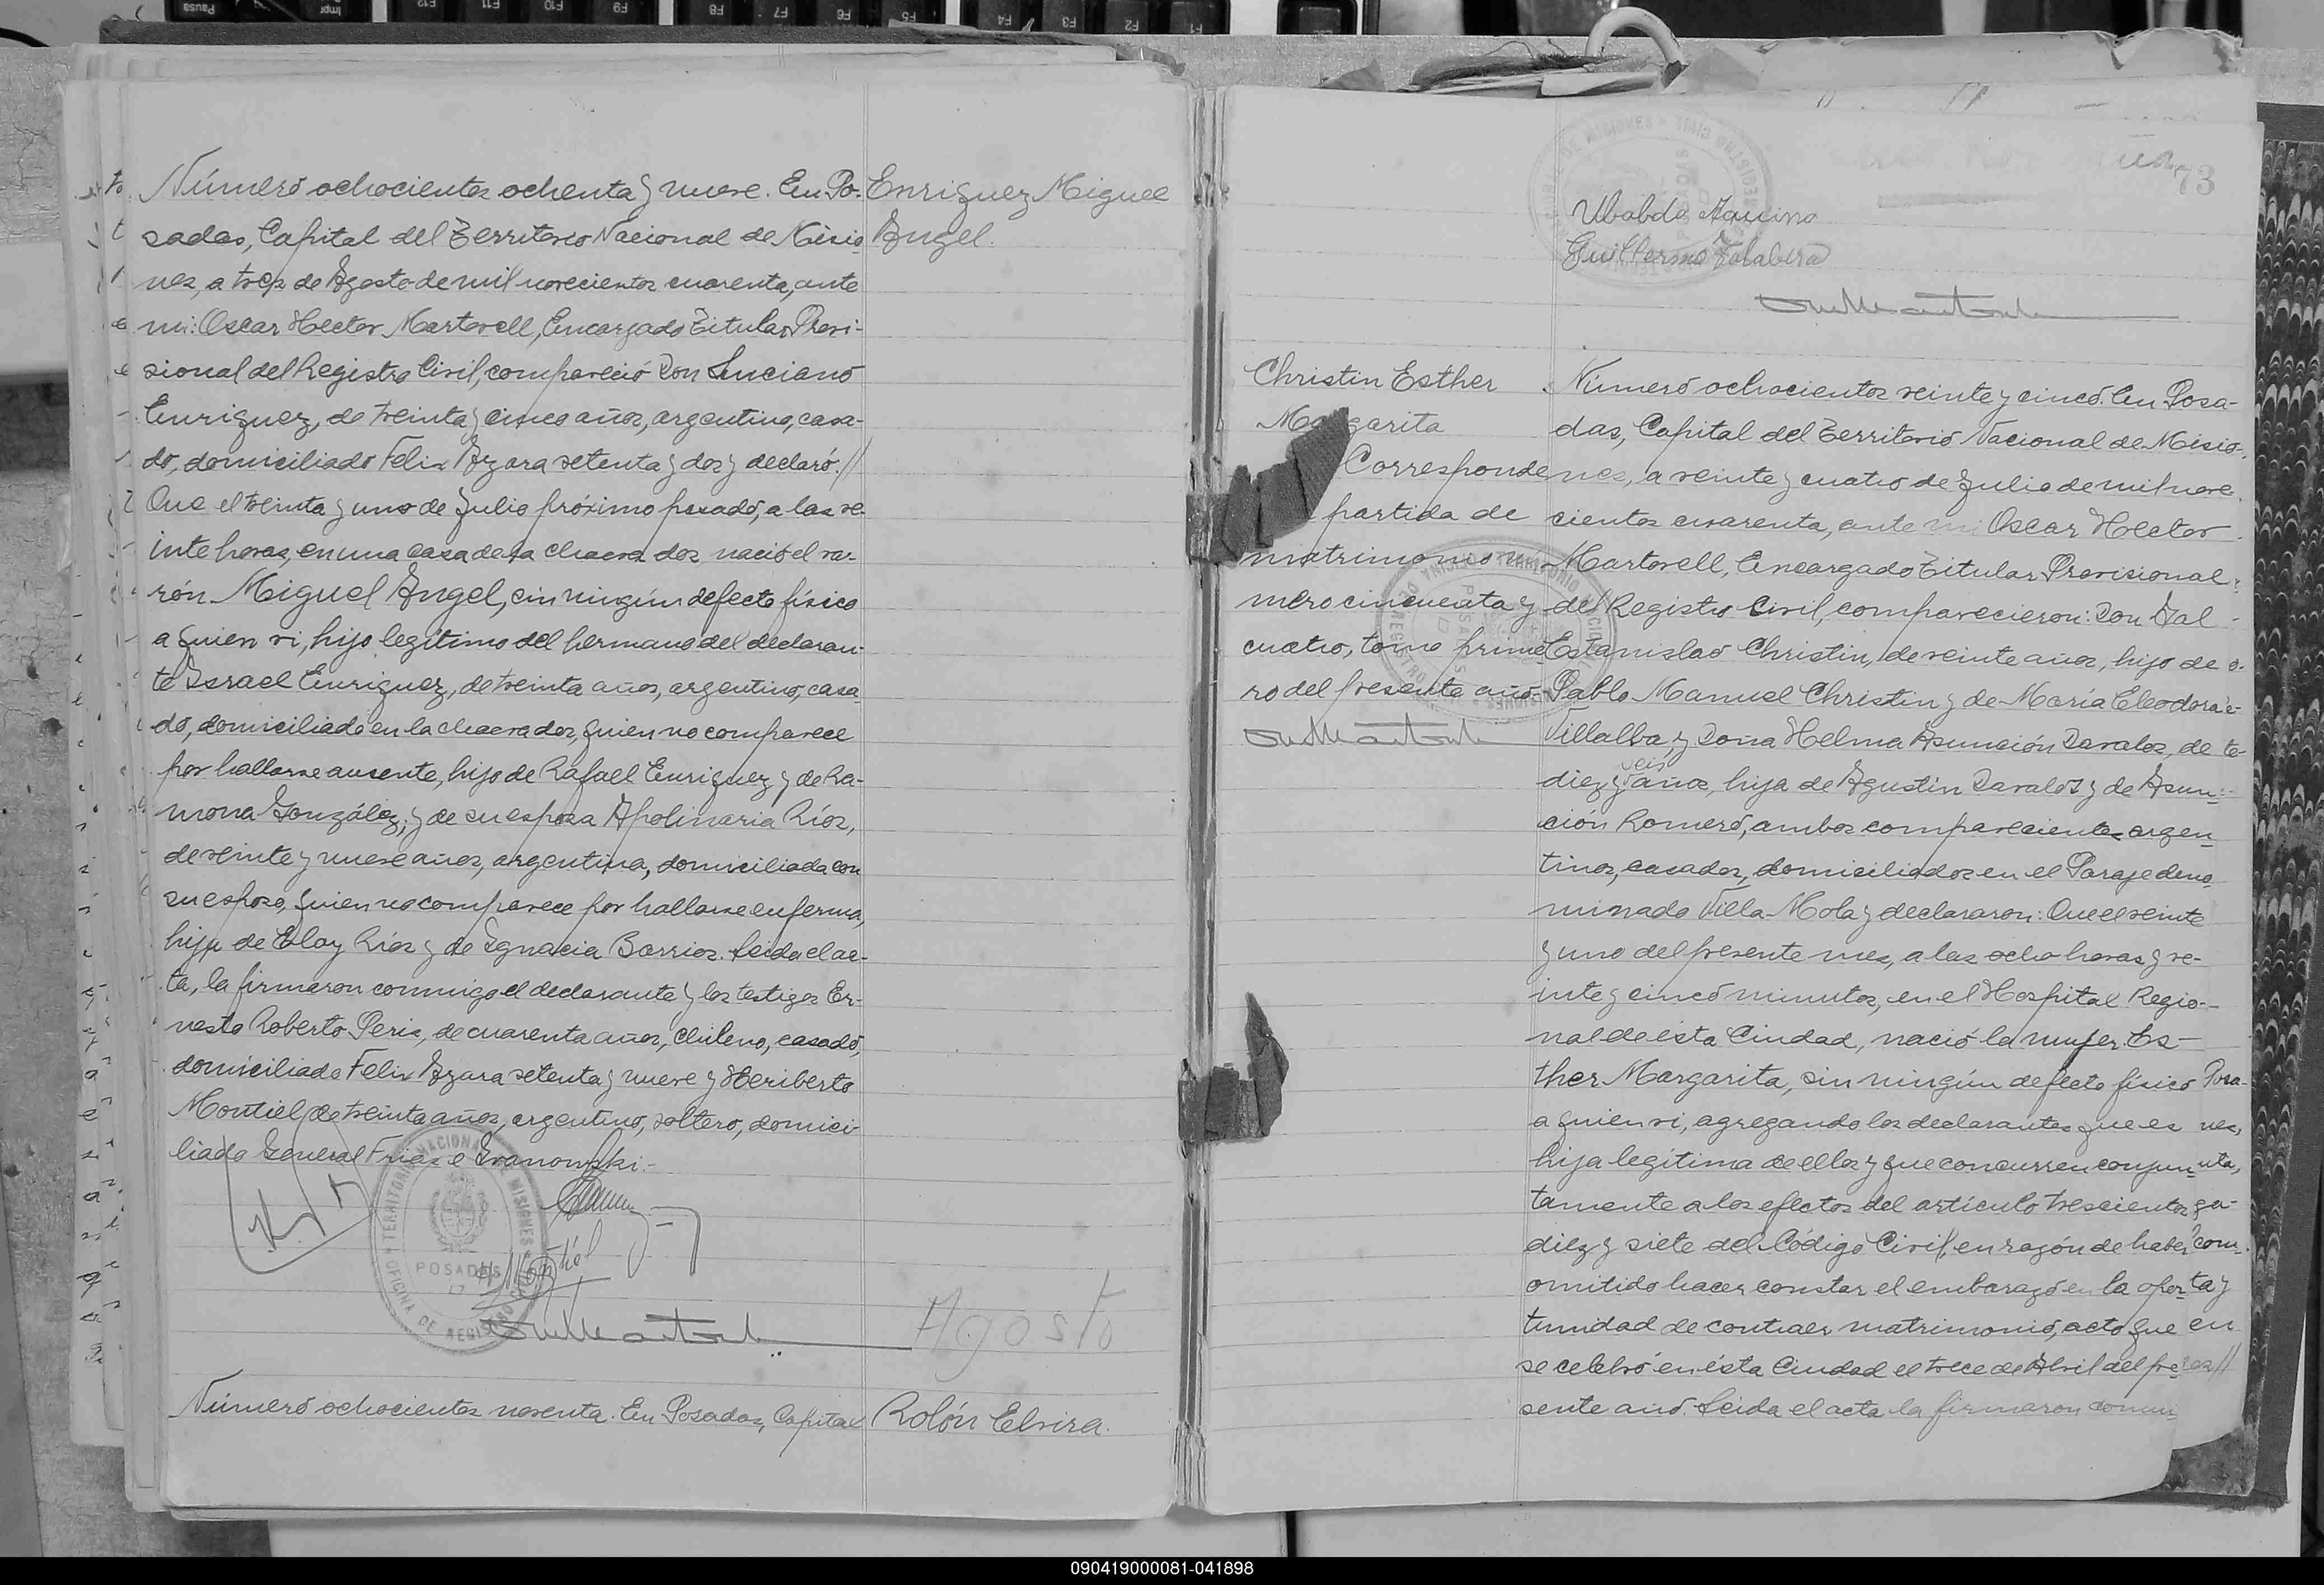 Número ochocientos ochenta y nueve. En Po-
sadas, Capital del Territorio Nacional de Misio-
nes, a tres de Agosto de mil novecientos cuarenta, ante
mi: Oscar Hector Martorell, Encargado Titular Provi-
sional del Registro Civil, compareció Don Luciano
Enriquez, de treinta y cinco años, argentino, casa-
do, domiciliado Felix Azara setenta y dos y declaró://
Que el treinta y uno de Julio próximo pasado, a las ve-
inte horas, en una casa de la chacra dos nació el va-
rón Miguel Angel, sin ningún defecto físico
a quien vi, hijo legítimo del hermano del declaran-
te Israel Enriquez, de treinta años, argentino, casa-
do, domiciliado en la chacra dos, quien no comparece
por hallarse ausente, hijo de Rafael Enriquez y de Ra-
mona González; y de su esposa Apolinaria Ríos,
de veinte y nueve años, argentina, domiciliada con
su esposo, quien no comparece por hallarse enferma,
hija de Eloy Ríos y de Ignacia Barrios. Leida el ac-
ta, la firmaron conmigo el declarante y los testigos Er-
nesto Roberto Peris, de cuarenta años, chileno, casado,
domiciliado Felix Azara setenta y nueve y Heriberto
Montiel, de treinta años, argentino, soltero, domici-
liado General Frias e Ivanowski.-
TERRITORIO NACIONAL MISIONES
POSADAS
OFICINA DE REGISTRO
Número ochocientos noventa. En Posadas, Capital
Enriquez Miguel
Angel.
Agosto
Rolón Elvira.
73
Ubaldo
Guillermo Talabera
Christin Esther
Margarita
Corresponde
partida de
matrimonio nú-
mero cincuenta y
cuatro, tomo prime-
ro del presente año-
Número ochocientos veinte y cinco. En Posa-
das, Capital del Territorio Nacional de Misio-
nes, a veinte y cuatro de Julio de mil nove-
cientos cuarenta, ante mi Oscar Hector
Martorell, Encargado Titular Provisional
del Registro Civil, comparecieron: Don Dal
Estanislao Christin, de veinte años, hijo de
Pablo Manuel Christin y de María Eleodora
Villalba, y Doña Helma Asunción Davalos, de
diez y seis años, hija de Agustin Davalos y de Asun-
ción Romero, ambos comparecientes argen-
tinos, casados, domiciliados en el Paraje deno-
minado Villa Mola y declararon: Que el veinte
y uno del presente mes, a las ocho horas y ve-
inte y cinco minutos, en el Hospital Regio-
nal de ésta Ciudad, nació la mujer Es-
ther Margarita, sin ningún defecto físico
a quien vi, agregando los declarantes que es
hija legítima de ellos y que concurren conjun-
tamente a los efectos del artículo trescientos
diez y siete del Código Civil, en razón de haber
omitido hacer constar el embarazo en la opor-
tunidad de contraer matrimonio, acto que
se celebró en ésta Ciudad el trece de Abril del pre-
sente año. Leida el acta la firmaron conmi-
090419000081-041898